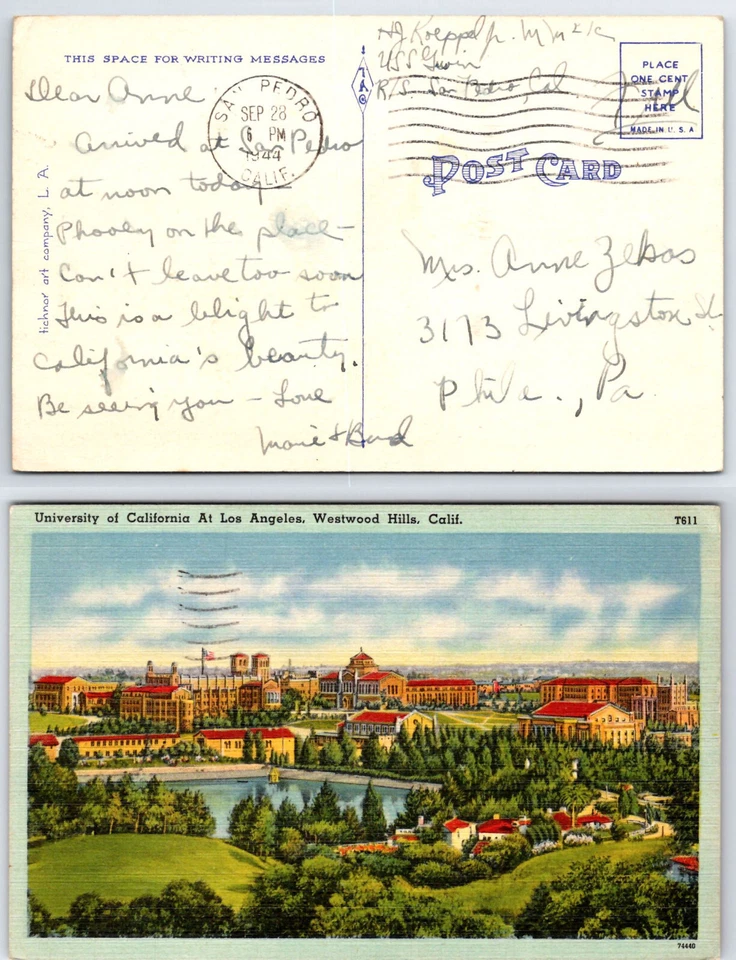 THIS SPACE FOR WRITING MESSAGES
Dear Anne
Arrived at San Pedro
at noon today
Phooey on the place -
Can't leave too soon
This is a blight to
California's beauty.
Be seeing you - Love
Marie & Bud
tichnor art company, L. A.
SAN PEDRO
SEP 28
6 PM
1944
CALIF.
TAC
HJ Koeppel Jr. M/M 2/c
USS Gwin
R/S San Pedro, Cal.
Free
PLACE
ONE CENT
STAMP
HERE
MADE IN U. S. A
POST CARD
Mrs. Anne Zebas
3173 Livingston St.
Phila., Pa
University of California At Los Angeles, Westwood Hills, Calif.
T611
74440